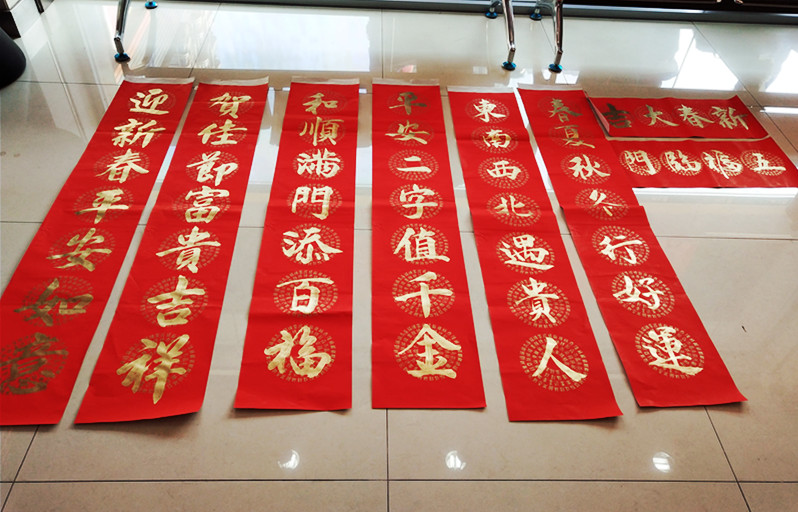 迎新春平安如意
賀佳節富貴吉祥
和順滿門添百福
平安二字值千金
東南西北遇貴人
春夏秋冬行好運
新春大吉
五福臨門